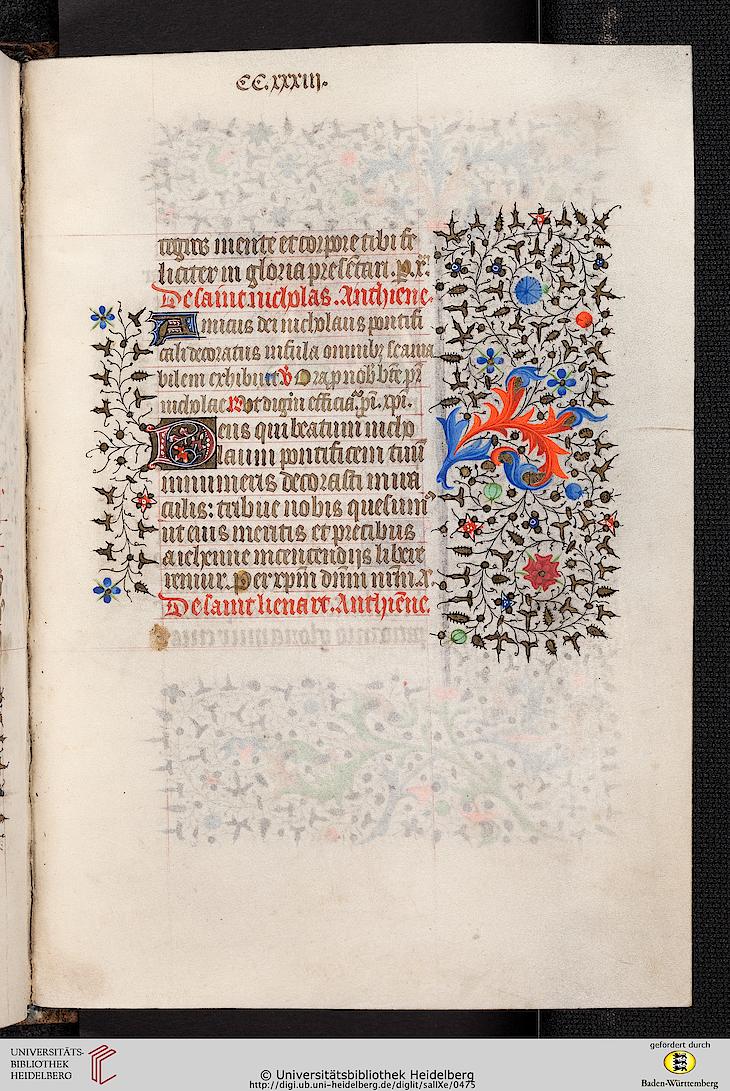 CC.xxxiij.
tegros mente et corpore tibi fe
liciter in gloria presētari. p. x̄.
De saint nicholas. Anthiene.
Amicus dei nicholaus pontifi
cali decoratus infula omnibꝫ se ama
bilem exhibuit. ℣ Ora p̄ nob̄ bt̄e pr̄
nicholae. ℟ Vt digni efficiam̄. p̄i. xpi.
Deus qui beatum nicho
laum pontificem tuū
innumeris decorasti mira
culis: tribue nobis quesumꝰ
ut eius meritis et precibus
a iehenne incencendijs libere
remur. Per xpm̄ dnm̄ nrm̄. A
De saint lienart. Anthiēne.
UNIVERSITÄTS-
BIBLIOTHEK
HEIDELBERG
© Universitätsbibliothek Heidelberg
http://digi.ub.uni-heidelberg.de/diglit/salIXe/0475
gefördert durch
Baden-Württemberg